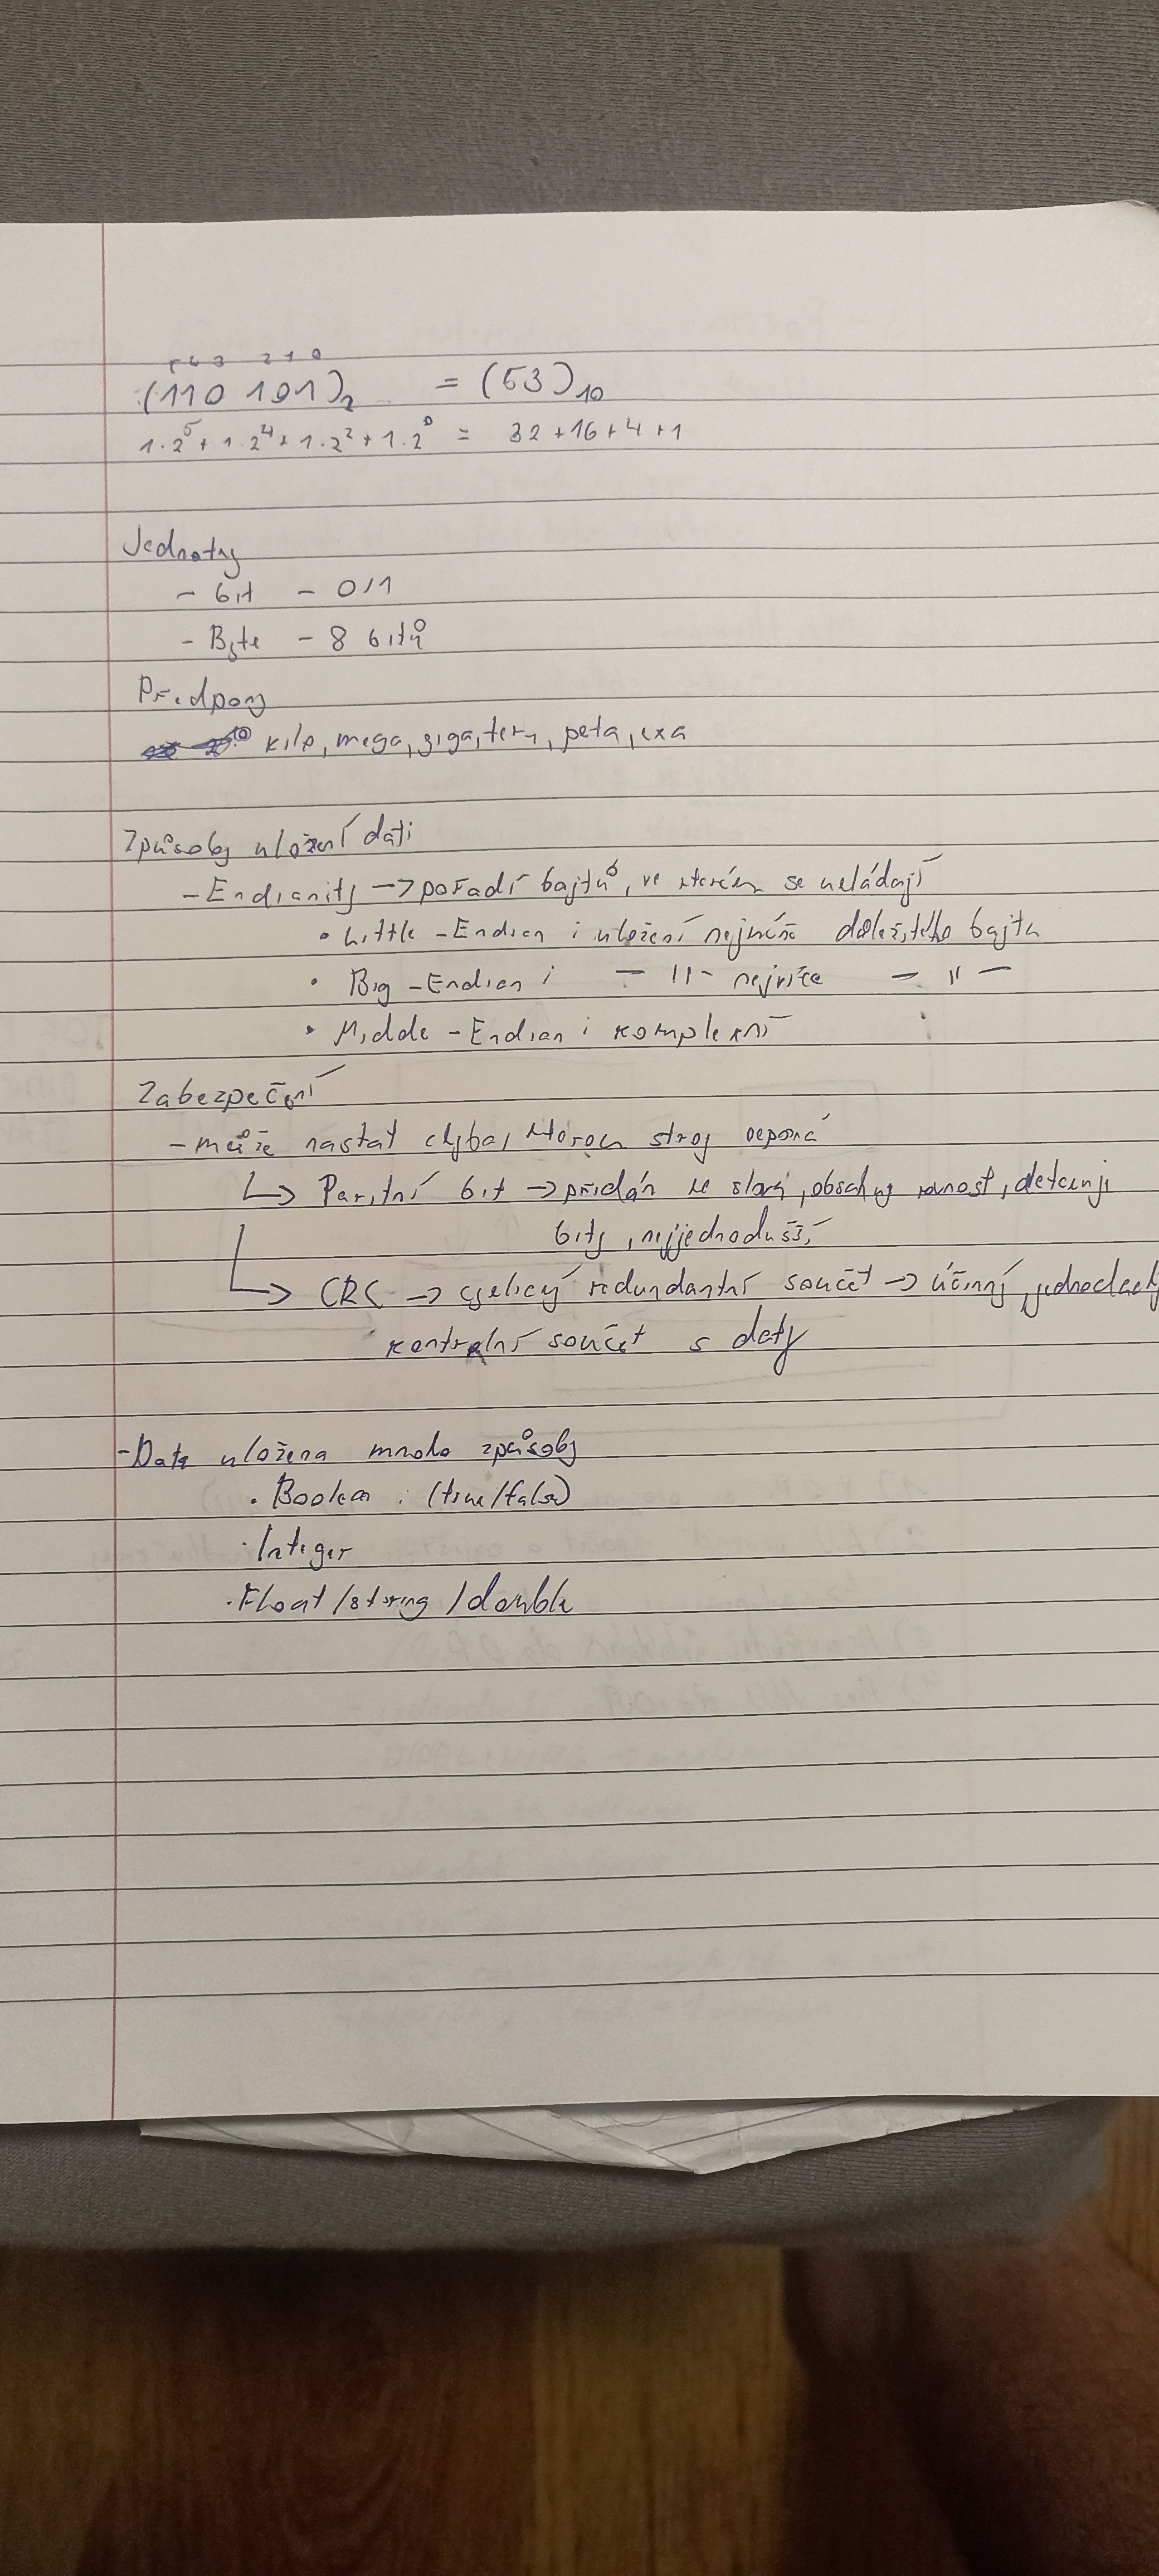 5 4 3 2 1 0
(110 101)₂ = (53)₁₀
1·2⁵ + 1·2⁴ + 1·2² + 1·2⁰ = 32+16+4+1
Jednotky
- bit - 0/1
- Byte - 8 bitů
Předpony
kilo, mega, giga, tera, peta, exa
Způsoby uložení dat
- Endianity -> pořadí bajtů, ve kterém se ukládají
• Little-Endian : uložení nejméně důležitého bajtu
• Big-Endian : — 11 — nejvíce — 11 —
• Midde-Endian : komplexní
Zabezpečení
- může nastat chyba, kterou stroj nepozná
↳ Paritní bit -> přidán ke slovu, obsahuj rovnost, detekují
bity, nejjednodušší
↳ CRC -> cyklický redundantní součet -> účinný, jednoduchý
kontrolní součet s daty
- Data uložena mnoho způsoby
• Boolean : (true/false)
• Integer
• Float/string/double